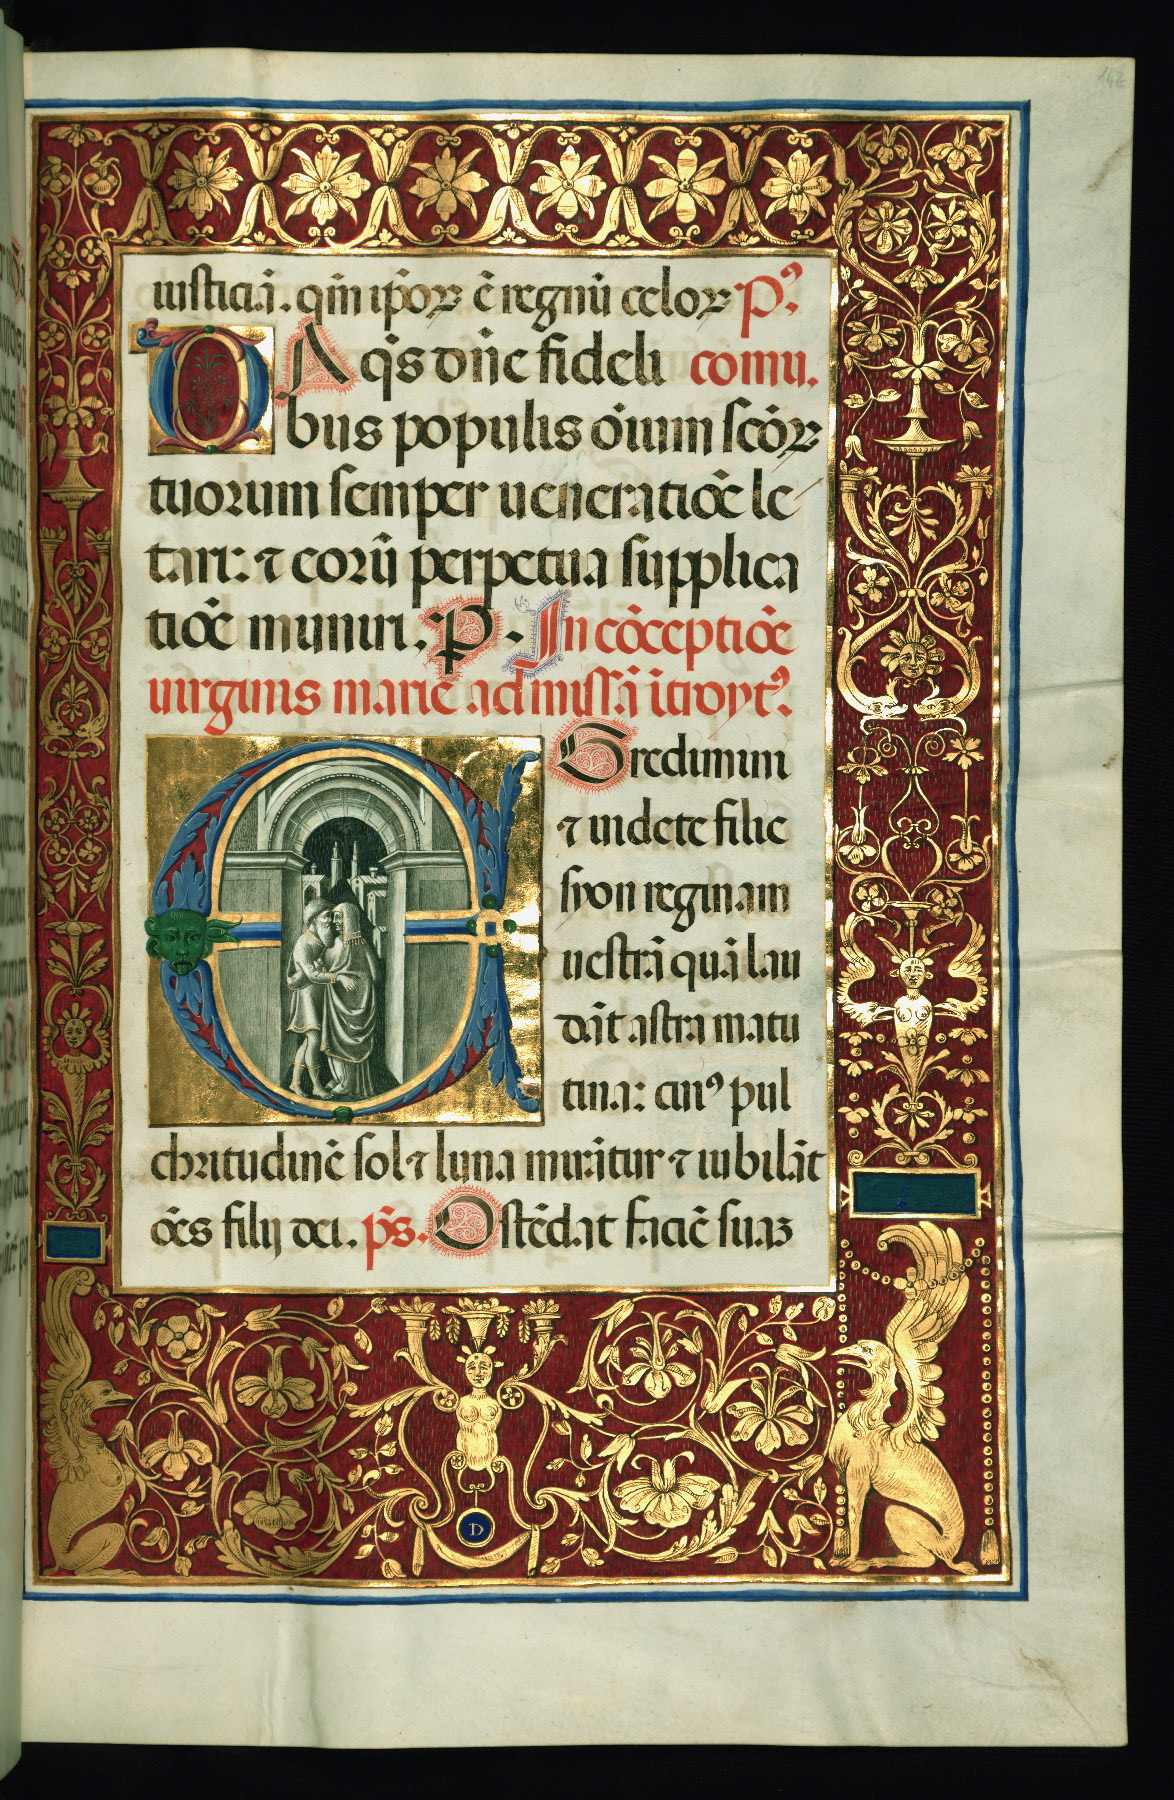 142
iusticiā. qm̄ ip̄oꝝ ē regnū celoꝝ P᷒.
DA q̄s dn̄e fideli comu.
bus populis oīum scōꝝ
tuorum semper ueneratiōe le
tari: ⁊ eorū perpetua supplica
tiōe muniri. P. In cōceptiōe
uirginis marie ad missā ītroyt᷒
EGredimini
⁊ uidete filie
syon reginam
uestrā quā lau
dāt astra matu
tina: cui᷒ pul
chritudinē sol ⁊ luna mirātur ⁊ iubilāt
oēs filij dei. ps̄. Ostēdat faciē suaз
D